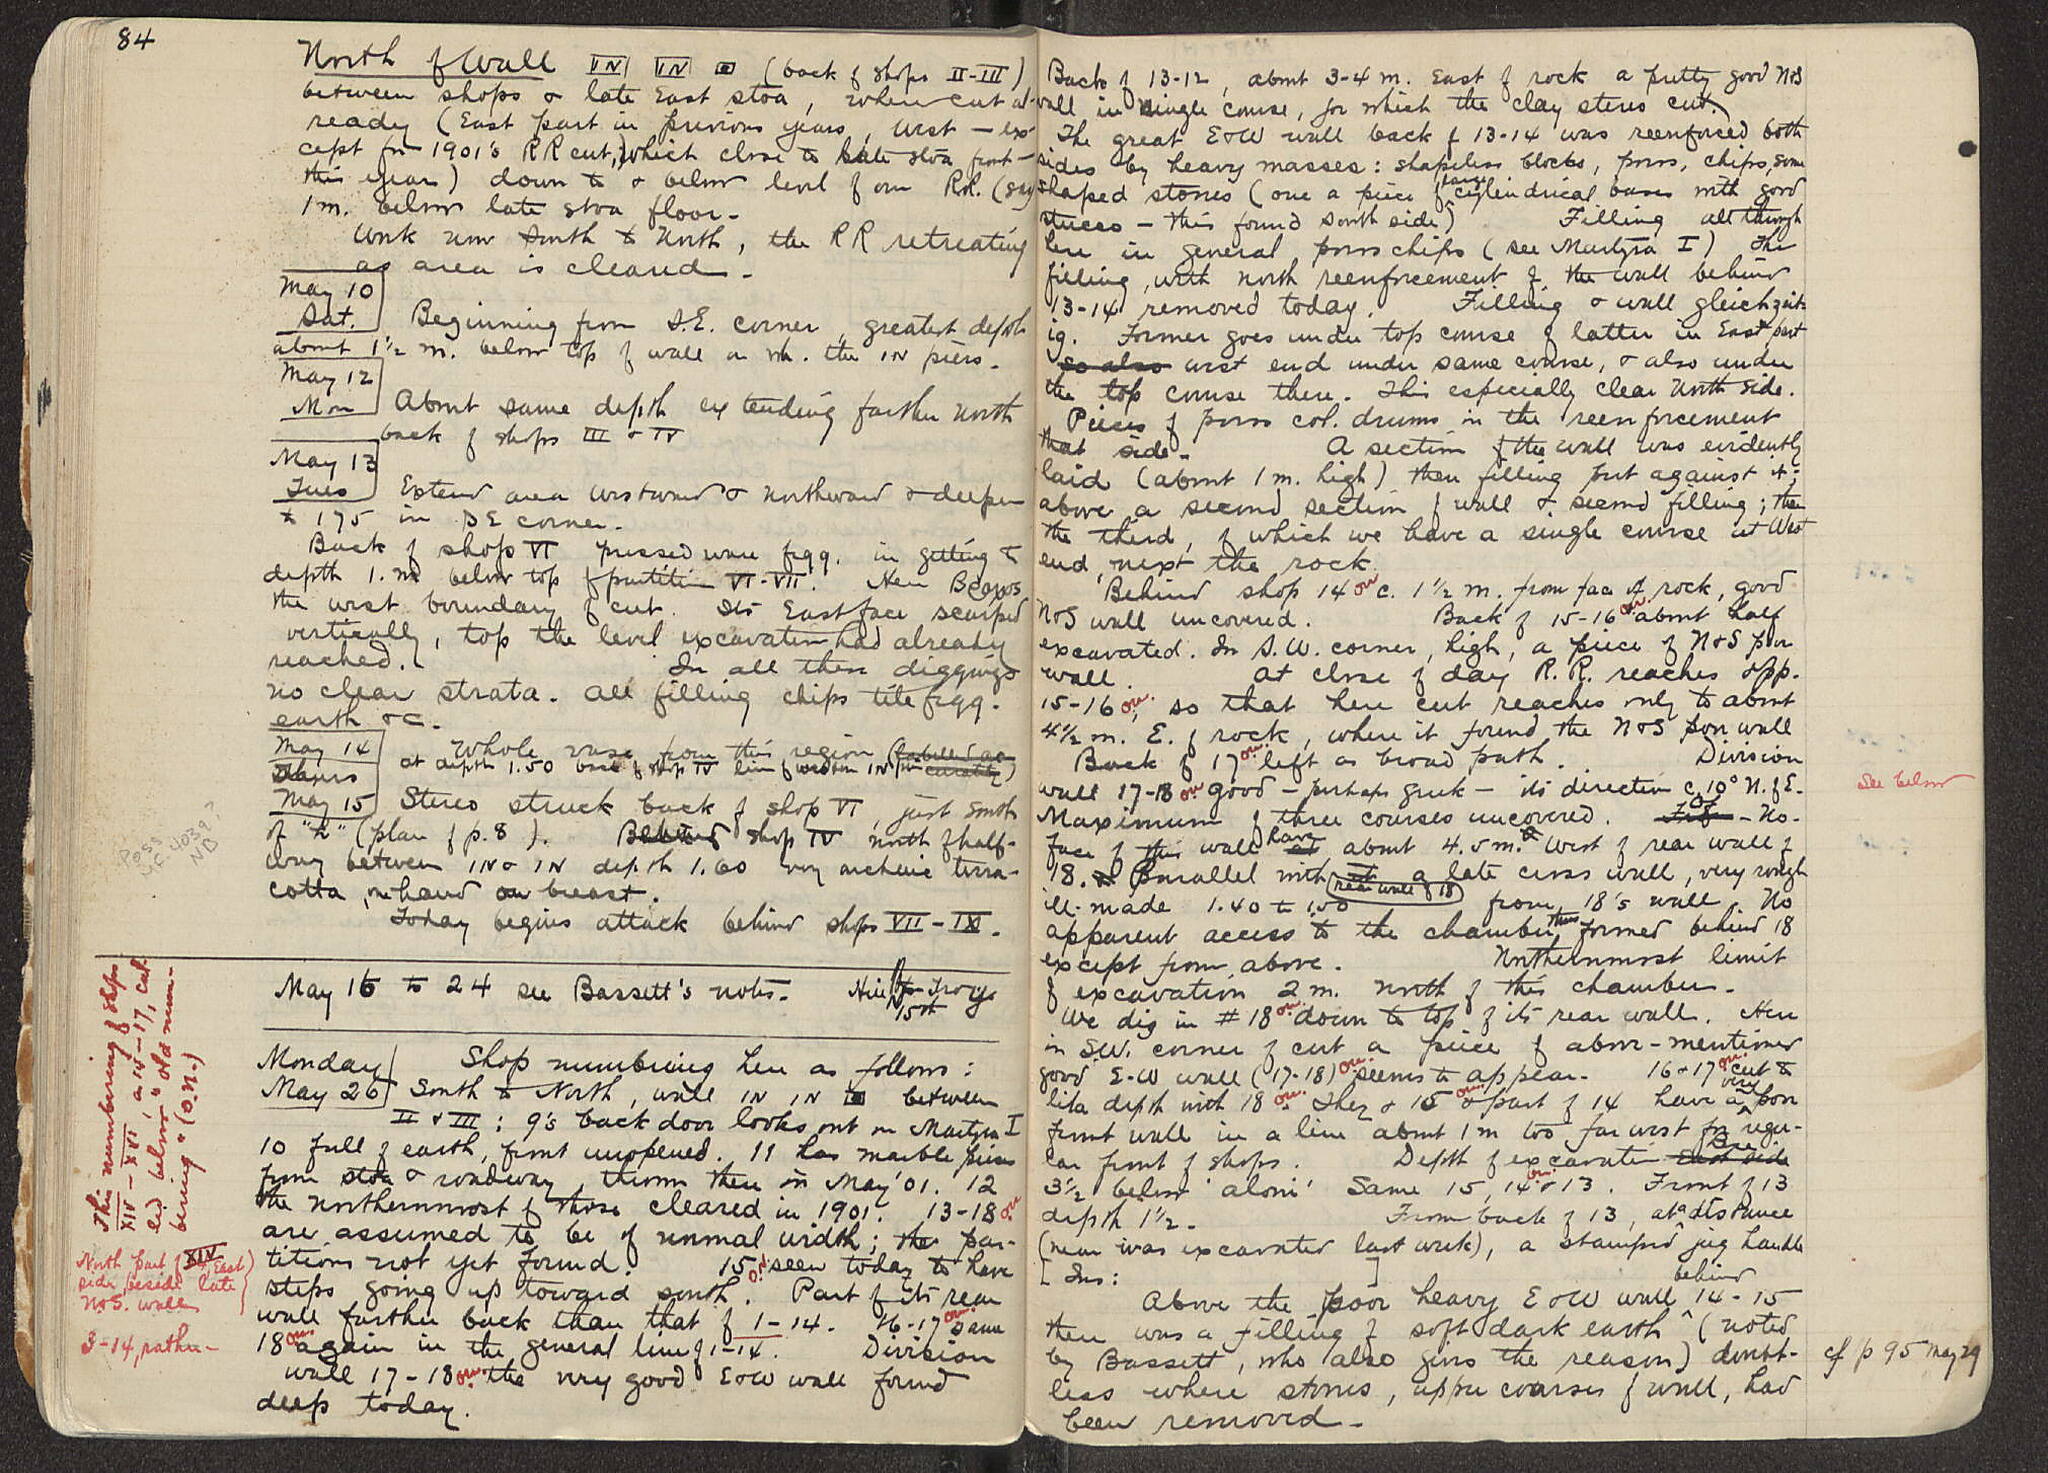 84
North of Wall IN IN (back of shops II-III)
between shops & late East stoa, where cut al-
ready (East part in previous years, West — ex-
cept for 1901's RR cut, which close to late stoa front —
this year) down to & below level of our RR. (say
1 m. below late stoa floor.
Work now South to North, the RR retreating
as area is cleared.
May 10
Sat. Beginning from S.E. corner, greatest depth
about 1½ m. below top of wall on wh. the IN piers.
May 12
Mon About same depth extending farther North
back of shops III & IV
May 13
Tues Extend area westward & northward & deepen
to 175 in SE corner.
Back of shop VI pressed ware frgg. in getting to
depth 1. m below top of partition VI-VII. Here
the west boundary of cut. Its East face scarped
vertically, top the level excavation had already
reached. In all these diggings
no clear strata. All filling chips tile frgg.
earth &c.
May 14 Whole vase from this region
at depth 1.50 back of shop IV line of western IN pier
May 15 Stereo struck back of shop VI, just South
of "h" (plan of p. 8). Behind shop IV north of half-
way between IN & IN depth 1.60 very archaic terra-
cotta, hand on breast.
Today begins attack behind shops VII-IX.
Poss
MF-4039?
NB
May 16 to 24 see Bassett's notes. Hill Troy
15th
Monday Shop numbering here as follows:
May 26 South to North, wall IN IN between
II & III: 9's back door looks out on Martyra I
10 full of earth, front unopened. 11 has marble pieces
from stoa & roadway, thrown there in May '01. 12
the northernmost of those cleared in 1901. 13-18 on
are assumed to be of normal width; the par-
titions not yet found. 15 on seen today to have
steps going up toward south. Part of its rear
wall farther back than that of 1-14. 16-17 on same
18 on again in the general line of 1-14. Division
wall 17-18 on the very good E&W wall found
deep today.
This numbering of shops
XIV-XVI, a 14-17, cal-
led below "old num-
bering" (O.N.)
North part of XIV
side, beside late
N&S. wall
3-14, rather-
Back of 13-12, about 3-4 m. East of rock a pretty good N&S
wall in single course, for which the clay stereo cut.
The great E&W wall back of 13-14 was reenforced both
sides by heavy masses: shapeless blocks, poros, chips, some
shaped stones (one a piece of large cylindrical base with good
stucco — this found south side) Filling all through
here in general poros chips (see Martyra I) This
filling, with north reenforcement of the wall behind
13-14 removed today. Filling & wall gleichzeit-
ig. Former goes under top course of latter in East part
so also west end under same course, & also under
the top course there. This especially clear North side.
Pieces of poros col. drums in the reenforcement
that side. A section of the wall was evidently
laid (about 1 m. high) then filling put against it;
above a second section of wall & second filling; then
the third, of which we have a single course at West
end, next the rock.
Behind shop 14 on c. 1½ m. from face of rock, good
N&S wall uncovered. Back of 15-16 on about half
excavated. In S.W. corner, high, a piece of N&S poros
wall. At close of day R.R. reaches opp.
15-16 on, so that here cut reaches only to about
4½ m. E. of rock, where it found the N&S poros wall
Back of 17 on left as broad path. Division
wall 17-18 on good — perhaps Greek — its direction c. 10° N. of E.
Maximum of three courses uncovered. On No.
face of this wall have about 4.5 m. West of rear wall of
18. Parallel with rear wall of 18 a late cross wall, very rough
ill-made 1.40 to 1.50 from 18's wall. No
apparent access to the chamber thus formed behind 18
except from above. Northernmost limit
of excavation 2 m. north of this chamber.
We dig in # 18 on down to top of its rear wall. Here
in S.W. corner of cut a piece of above-mentioned
good E-W wall (17-18) on seems to appear. 16 & 17 on cut to
like depth with 18 on. They & 15 on & part of 14 have a very poor
front wall in a line about 1 m too far west for regu-
lar front of shops. Depth of excavation East side
3½ below 'aloni' Same 15, 14 on & 13. Front of 13
depth 1½. From back of 13, at a distance
(near was excavated last week), a stamped jug handle
[Ins: ]
Above the poor heavy E&W wall behind 14-15
there was a filling of soft dark earth (noted
by Bassett, who also gives the reason) doubt-
less where stones, upper courses of wall, had
been removed.
See below
cf p 95 May 29